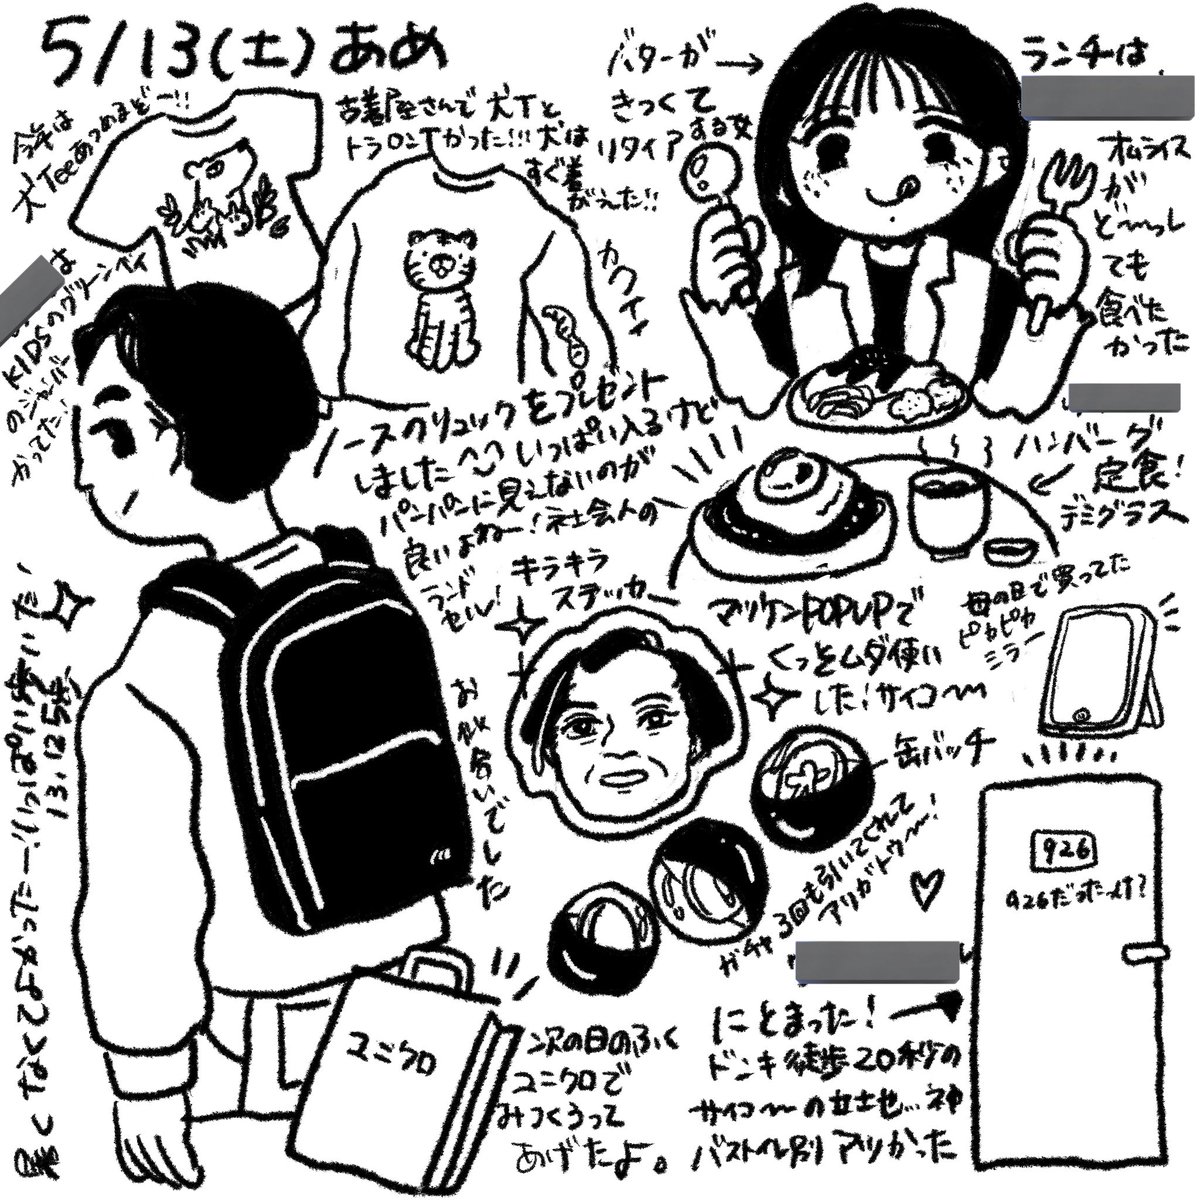 5/13(土)あめ
今年は
犬Teeあつめるぞー!!
古着屋さんで 犬Tと
トラロンTかった!!!犬は
すぐ着
がえた!!
カワイイ
は
KIDSのグリーンベイ
のジャンバー
かってた!
バターが→
きつくて
リタイアする女
ランチは
オムライス
が
ど〜っし
ても
食べた
かった
ハンバーグ
定食!
デミグラス
ノースのリュックをプレゼント
しました^^いっぱい入るけど
パンパンに見えないのが
良いよねー!社会人の
ランド
セル!
お似合いでした
キラキラ
ステッカー
マツケンPOPUPで
くっとムダ使い
した!サイコ〜
母の日で買ってた
ピカピカ
ミラー
缶バッチ
ガチャ3回も引いてくれて
アリガトウ〜!
926
926だったっけ?
にとまった!→
ドンキ徒歩20秒の
サイコ〜の立地…神
バストイレ別 アリガかった
ユニクロ
次の日のふく
ユニクロで
みつくろって
あげたよ。
暑くなくてよかったー!いっぱい歩いた!
13,125歩